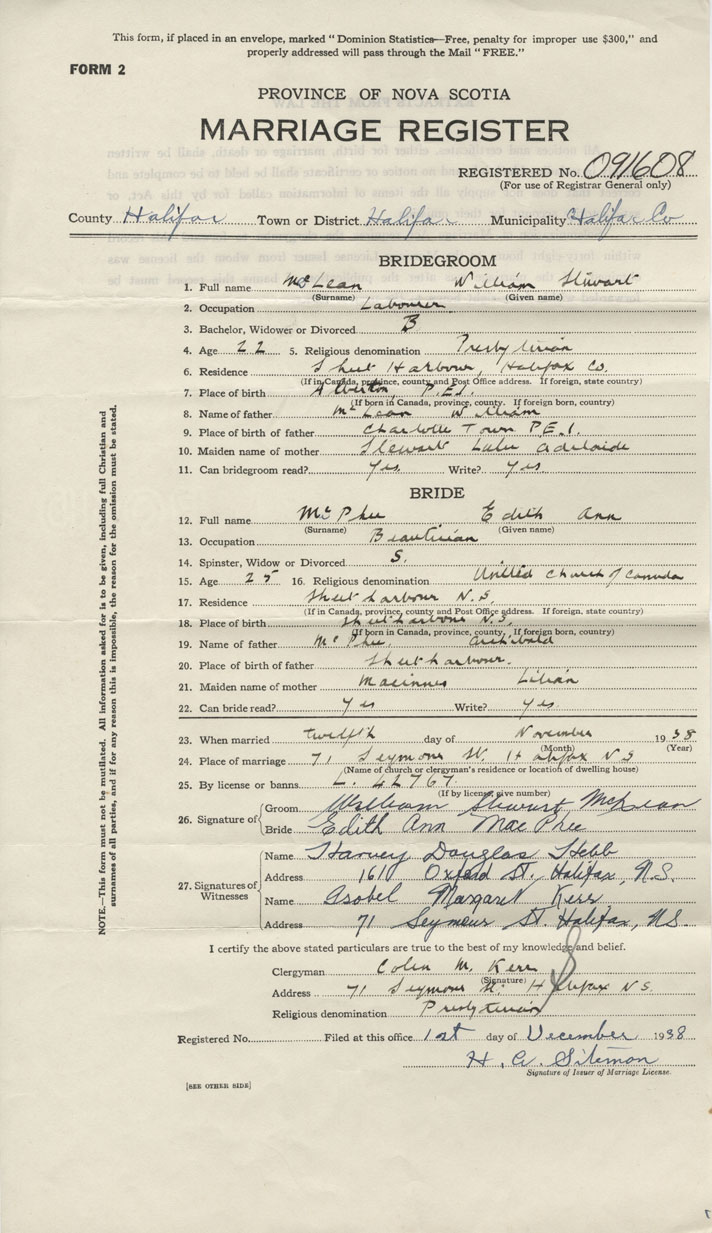 This form, if placed in an envelope, marked "Dominion Statistics—Free, penalty for improper use $300," and
properly addressed will pass through the Mail "FREE."
FORM 2
PROVINCE OF NOVA SCOTIA
MARRIAGE REGISTER
REGISTERED No. 091608
(For use of Registrar General only)
County Halifax Town or District Halifax Municipality Halifax Co
BRIDEGROOM
1. Full name McLean William Stewart
(Surname) (Given name)
2. Occupation Labourer
3. Bachelor, Widower or Divorced B
4. Age 22 5. Religious denomination Presbyterian
6. Residence Sheet Harbour, Halifax Co.
(If in Canada, province, county and Post Office address. If foreign, state county)
7. Place of birth Alberton, P.E.I.
(If born in Canada, province, county. If foreign born, country)
8. Name of father McLean William
9. Place of birth of father Charlotte Town P.E.I.
10. Maiden name of mother Stewart Lulu Adelaide
11. Can bridegroom read? Yes Write? Yes
BRIDE
12. Full name McPhee Edith Ann
(Surname) (Given name)
13. Occupation Beautician
14. Spinster, Widow or Divorced S.
15. Age 25 16. Religious denomination United Church of Canada
17. Residence Sheet harbour N.S.
(If in Canada, province, county and Post Office address. If foreign, state county)
18. Place of birth Sheet harbour N.S.
(If born in Canada, province, county. If foreign born, country)
19. Name of father McPhee Archibald
20. Place of birth of father Sheet harbour.
21. Maiden name of mother Macinnes Lilian
22. Can bride read? Yes Write? Yes
23. When married twelfth day of November 1938
(Month) (Year)
24. Place of marriage 71 Seymour St. Halifax N S
(Name of church or clergyman's residence or location of dwelling house)
25. By license or banns L. 42767
(If by license, give number)
26. Signature of Groom William Stewart McLean
Bride Edith Ann MacPhee
27. Signatures of Witnesses Name Harvey Douglas Hebb
Address 161 Oxford St. Halifax, N.S.
Name Isobel Margaret Kerr
Address 71 Seymour St. Halifax, NS
I certify the above stated particulars are true to the best of my knowledge and belief.
Clergyman Colin M. Kerr
(Signature)
Address 71 Seymour St. Halifax N S.
Religious denomination Presbyterian
Registered No. Filed at this office 1st day of December 1938
H. A. Sitemon
Signature of Issuer of Marriage License.
[SEE OTHER SIDE]
NOTE.—This form must not be mutilated. All information asked for is to be given, including full Christian and
surnames of all parties, and if for any reason this is impossible, the reason for the omission must be stated.